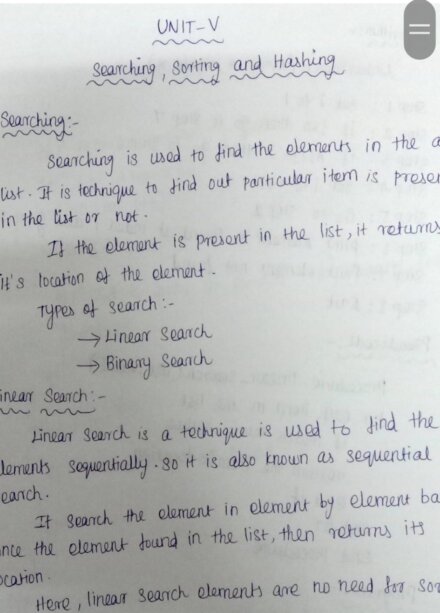 UNIT-V
Searching, Sorting and Hashing
Searching:-
Searching is used to find the elements in the a
list. It is technique to find out particular item is presen
in the list or not.
If the element is present in the list, it returns
it's location of the element.
Types of search:-
→ Linear Search
→ Binary Search
inear Search:-
Linear Search is a technique is used to find the
lements sequentially. so it is also known as sequential
earch.
It search the element in element by element ba
nce the element found in the list, then returns its
ocation.
Here, linear search elements are no need for sor